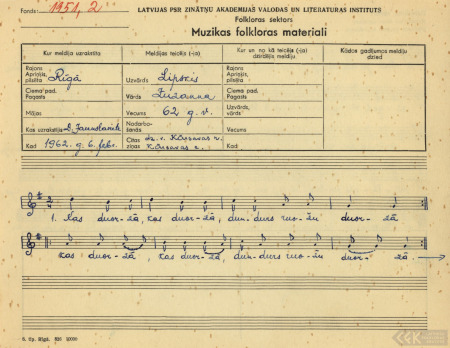 Fonds: 1951, 2
LATVIJAS PSR ZINĀTŅU AKADEMIJAS VALODAS UN LITERATURAS INSTITUTS
Folkloras sektors
Muzikas folkloras materiali
Kur meldija uzrakstīta
Meldijas teicējs (-ja)
Kur un no kā teicējs (-ja) dzirdējis meldiju
Kādos gadījumos meldiju dzied
Rajons
Apriņķis,
pilsēta Rīgā
Uzvārds Lipskis
Rajons
Apriņķis,
pilsēta
Ciems pad.
Pagasts
Vārds Zuzanna
Ciems pad.
Pagasts
Mājas
Vecums 62 g. v.
Uzvārds,
vārds
Kas uzrakstījis
Nodarbošanās
Vecums
Kad 1962. g. 6. febr.
Citas ziņas dz. v. Kārsavas r.
Kārsavas r.
Kad
1. Kas duor-zā, kas duor-zā, dun-durs ruo-žu duor-zā
kas duor-zā, kas duor-zā, dun-durs ruo-žu duor-zā.